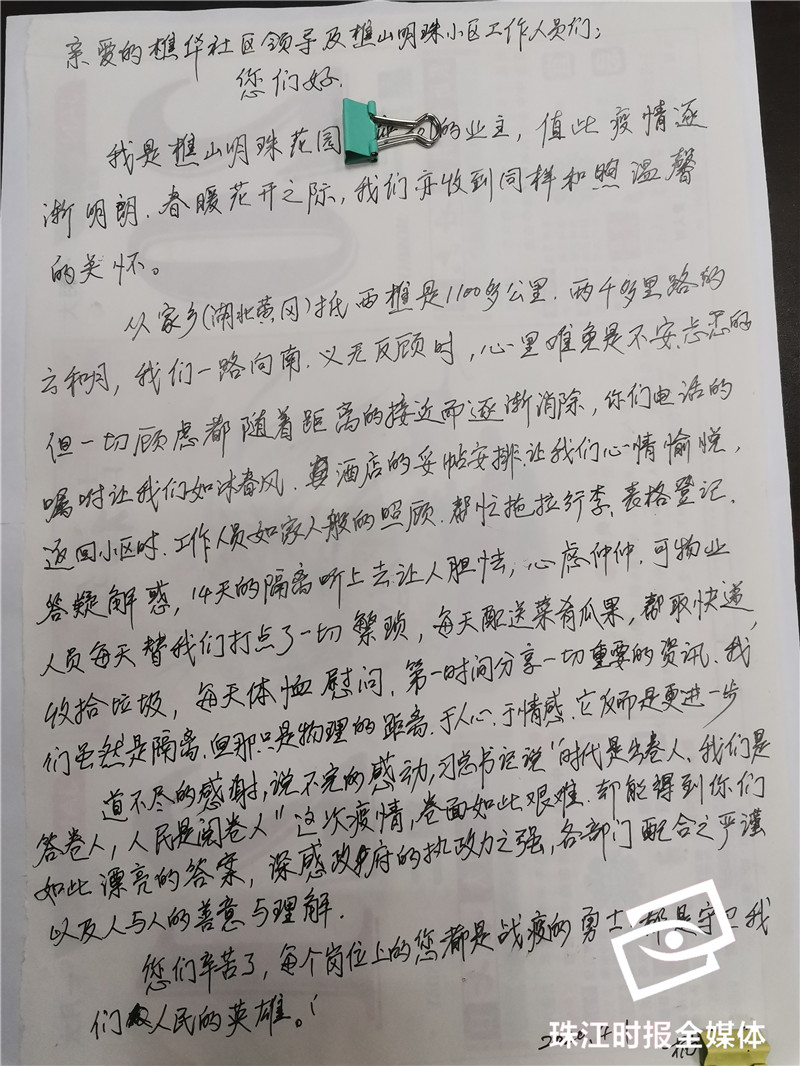 亲爱的樵华社区领导及樵山明珠小区工作人员们：
您们好.
我是樵山明珠花园的业主，值此疫情逐
渐明朗.春暖花开之际，我们亦收到同样和煦温馨
的关怀。
从家乡(湖北黄冈)抵西樵是1100多公里.两千多里路的
云和月，我们一路向南.义无反顾时，心里难免是不安忐忑的
但一切顾虑都随着距离的接近而逐渐消除，你们电话的
嘱咐让我们如沐春风.酒店的妥帖安排.让我们心情愉悦，
返回小区时.工作人员如家人般的照顾.帮忙拖拉行李.表格登记.
答疑解惑，14天的隔离听上去让人胆怯，心虑忡忡.可物业
人员每天替我们打点了一切繁琐，每天配送菜肴瓜果，帮取快递，
收拾垃圾，每天体恤慰问.第一时间分享一切重要的资讯.我
们虽然是隔离.但那只是物理的距离.于人心.于情感.它反而是更进一步
道不尽的感谢，说不完的感动，习总书记说“时代是出卷人.我们是
答卷人，人民是阅卷人”这次疫情，卷面如此艰难.却能得到你们
如此漂亮的答案，深感政府的执政力之强，各部门配合之严谨
以及人与人的善意与理解.
您们辛苦了，每个岗位上的您都是战疫的勇士，都是守卫我
们人民的英雄。！
珠江时报全媒体